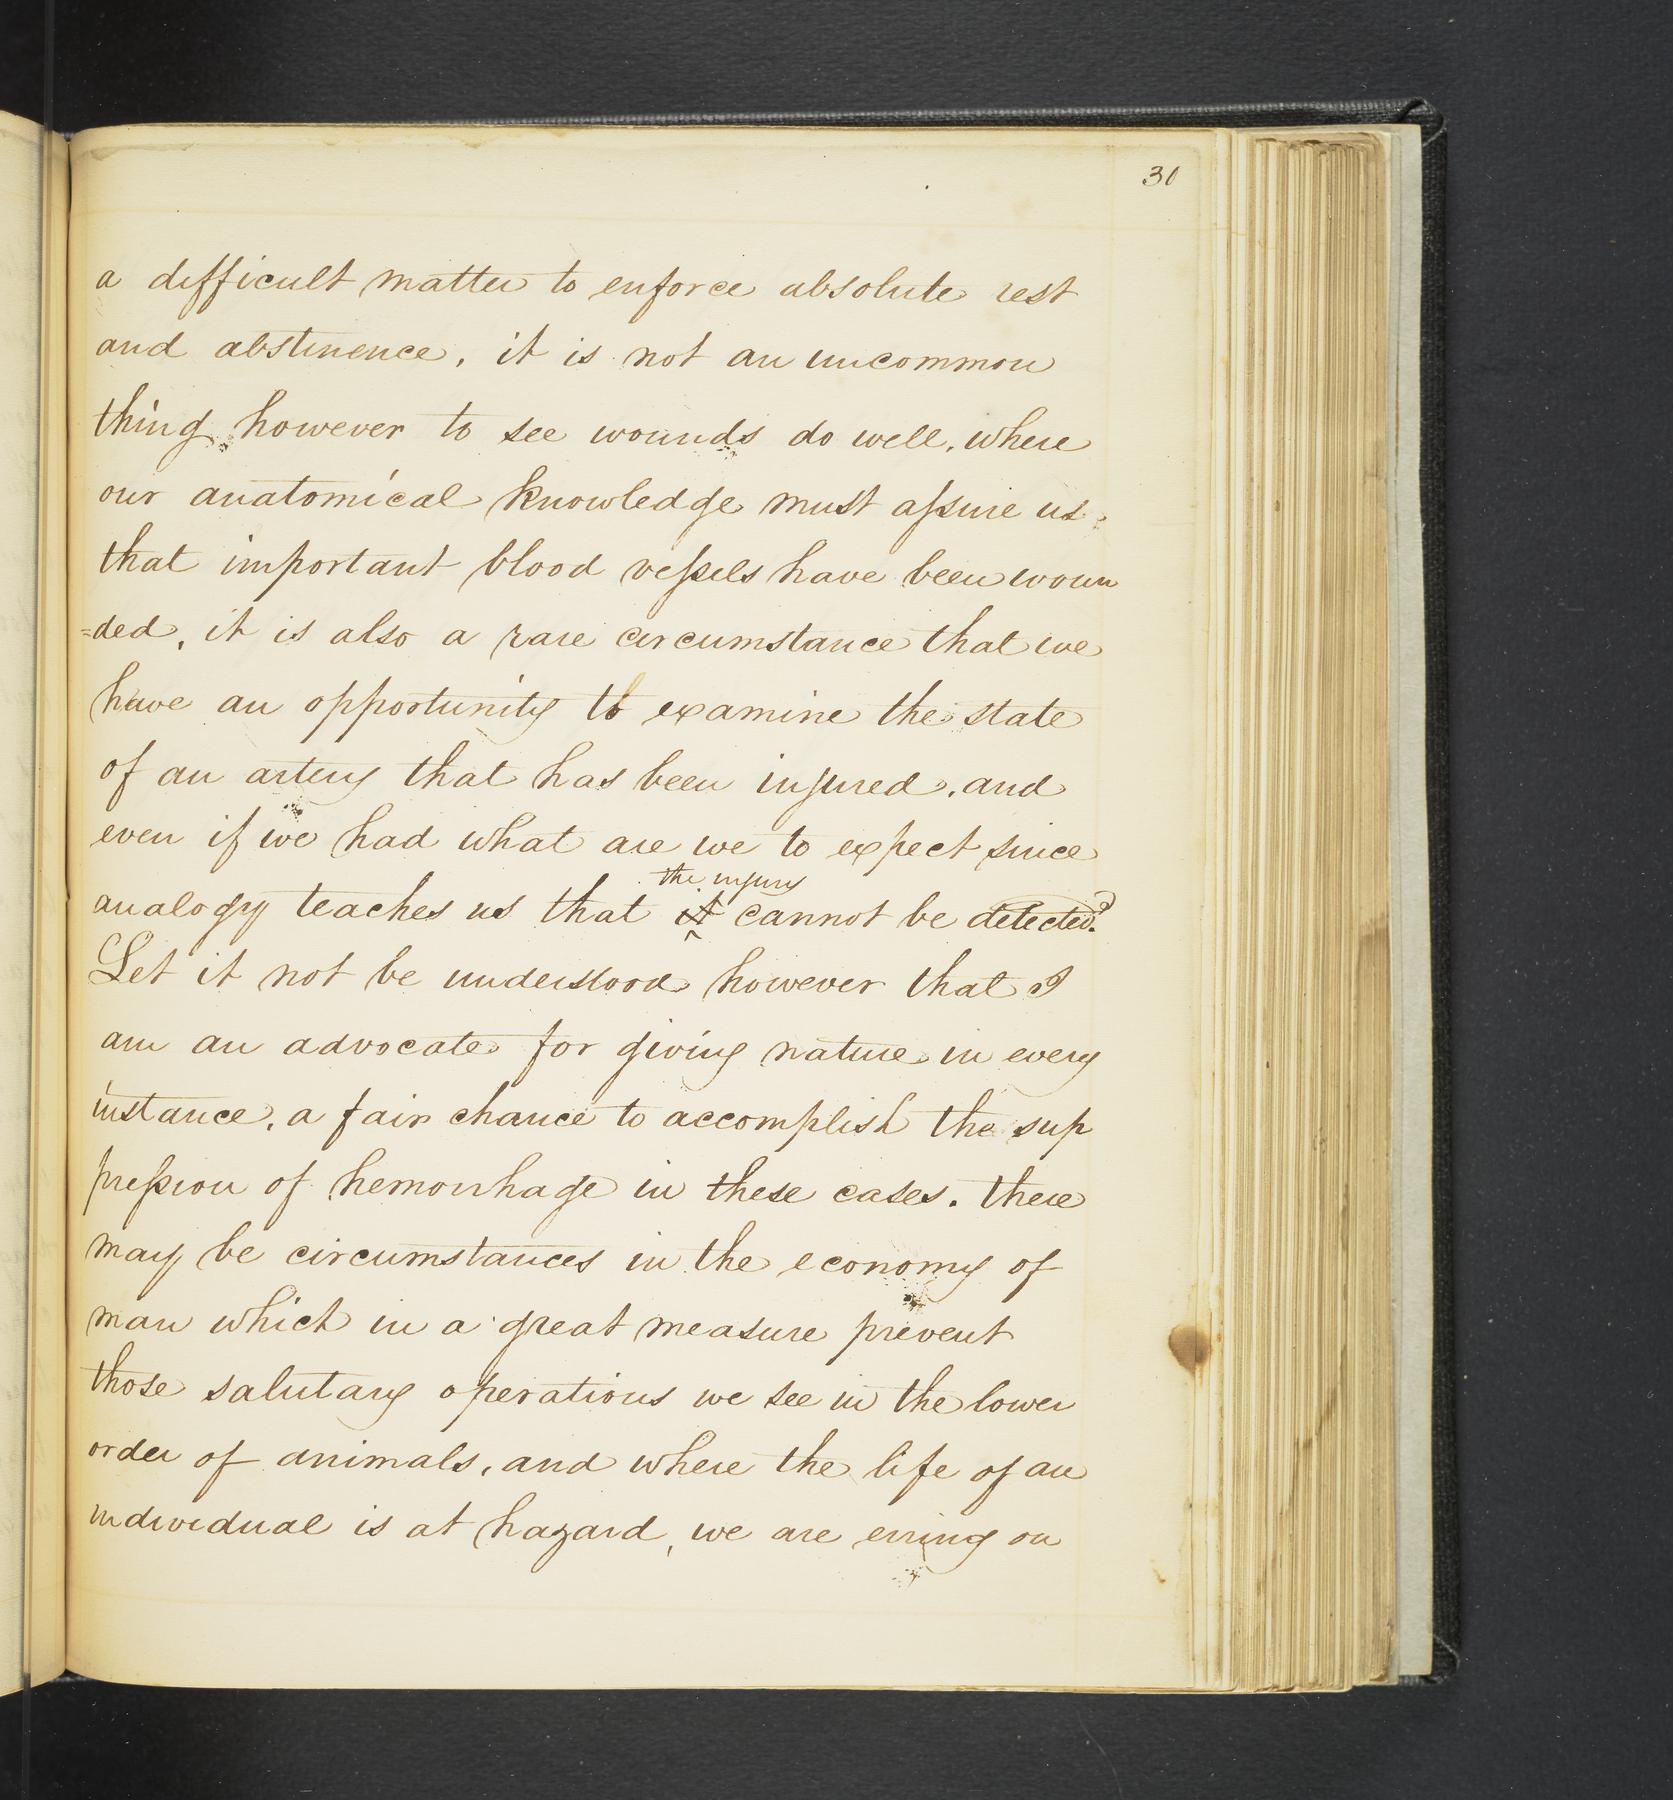 30
a difficult matter to enforce absolute rest
and abstinence, it is not an uncommon
thing however to see wounds do well, where
our anatomical knowledge must aſsure us
that important blood veſsels have been woun
=ded, it is also a rare circumstance that we
have an opportunity to examine the state
of an artery that has been injured, and
even if we had what are we to expect since
the injury
analogy teaches us that it cannot be detected?
Let it not be understood however that I
am an advocate for giving nature in every
instance, a fair chance to accomplish the sup
preſsion of hemorrhage in these cases. there
may be circumstances in the economy of
man which in a great measure prevent
those salutary operations we see in the lower
order of animals, and where the life of an
individual is at hazard, we are erring on